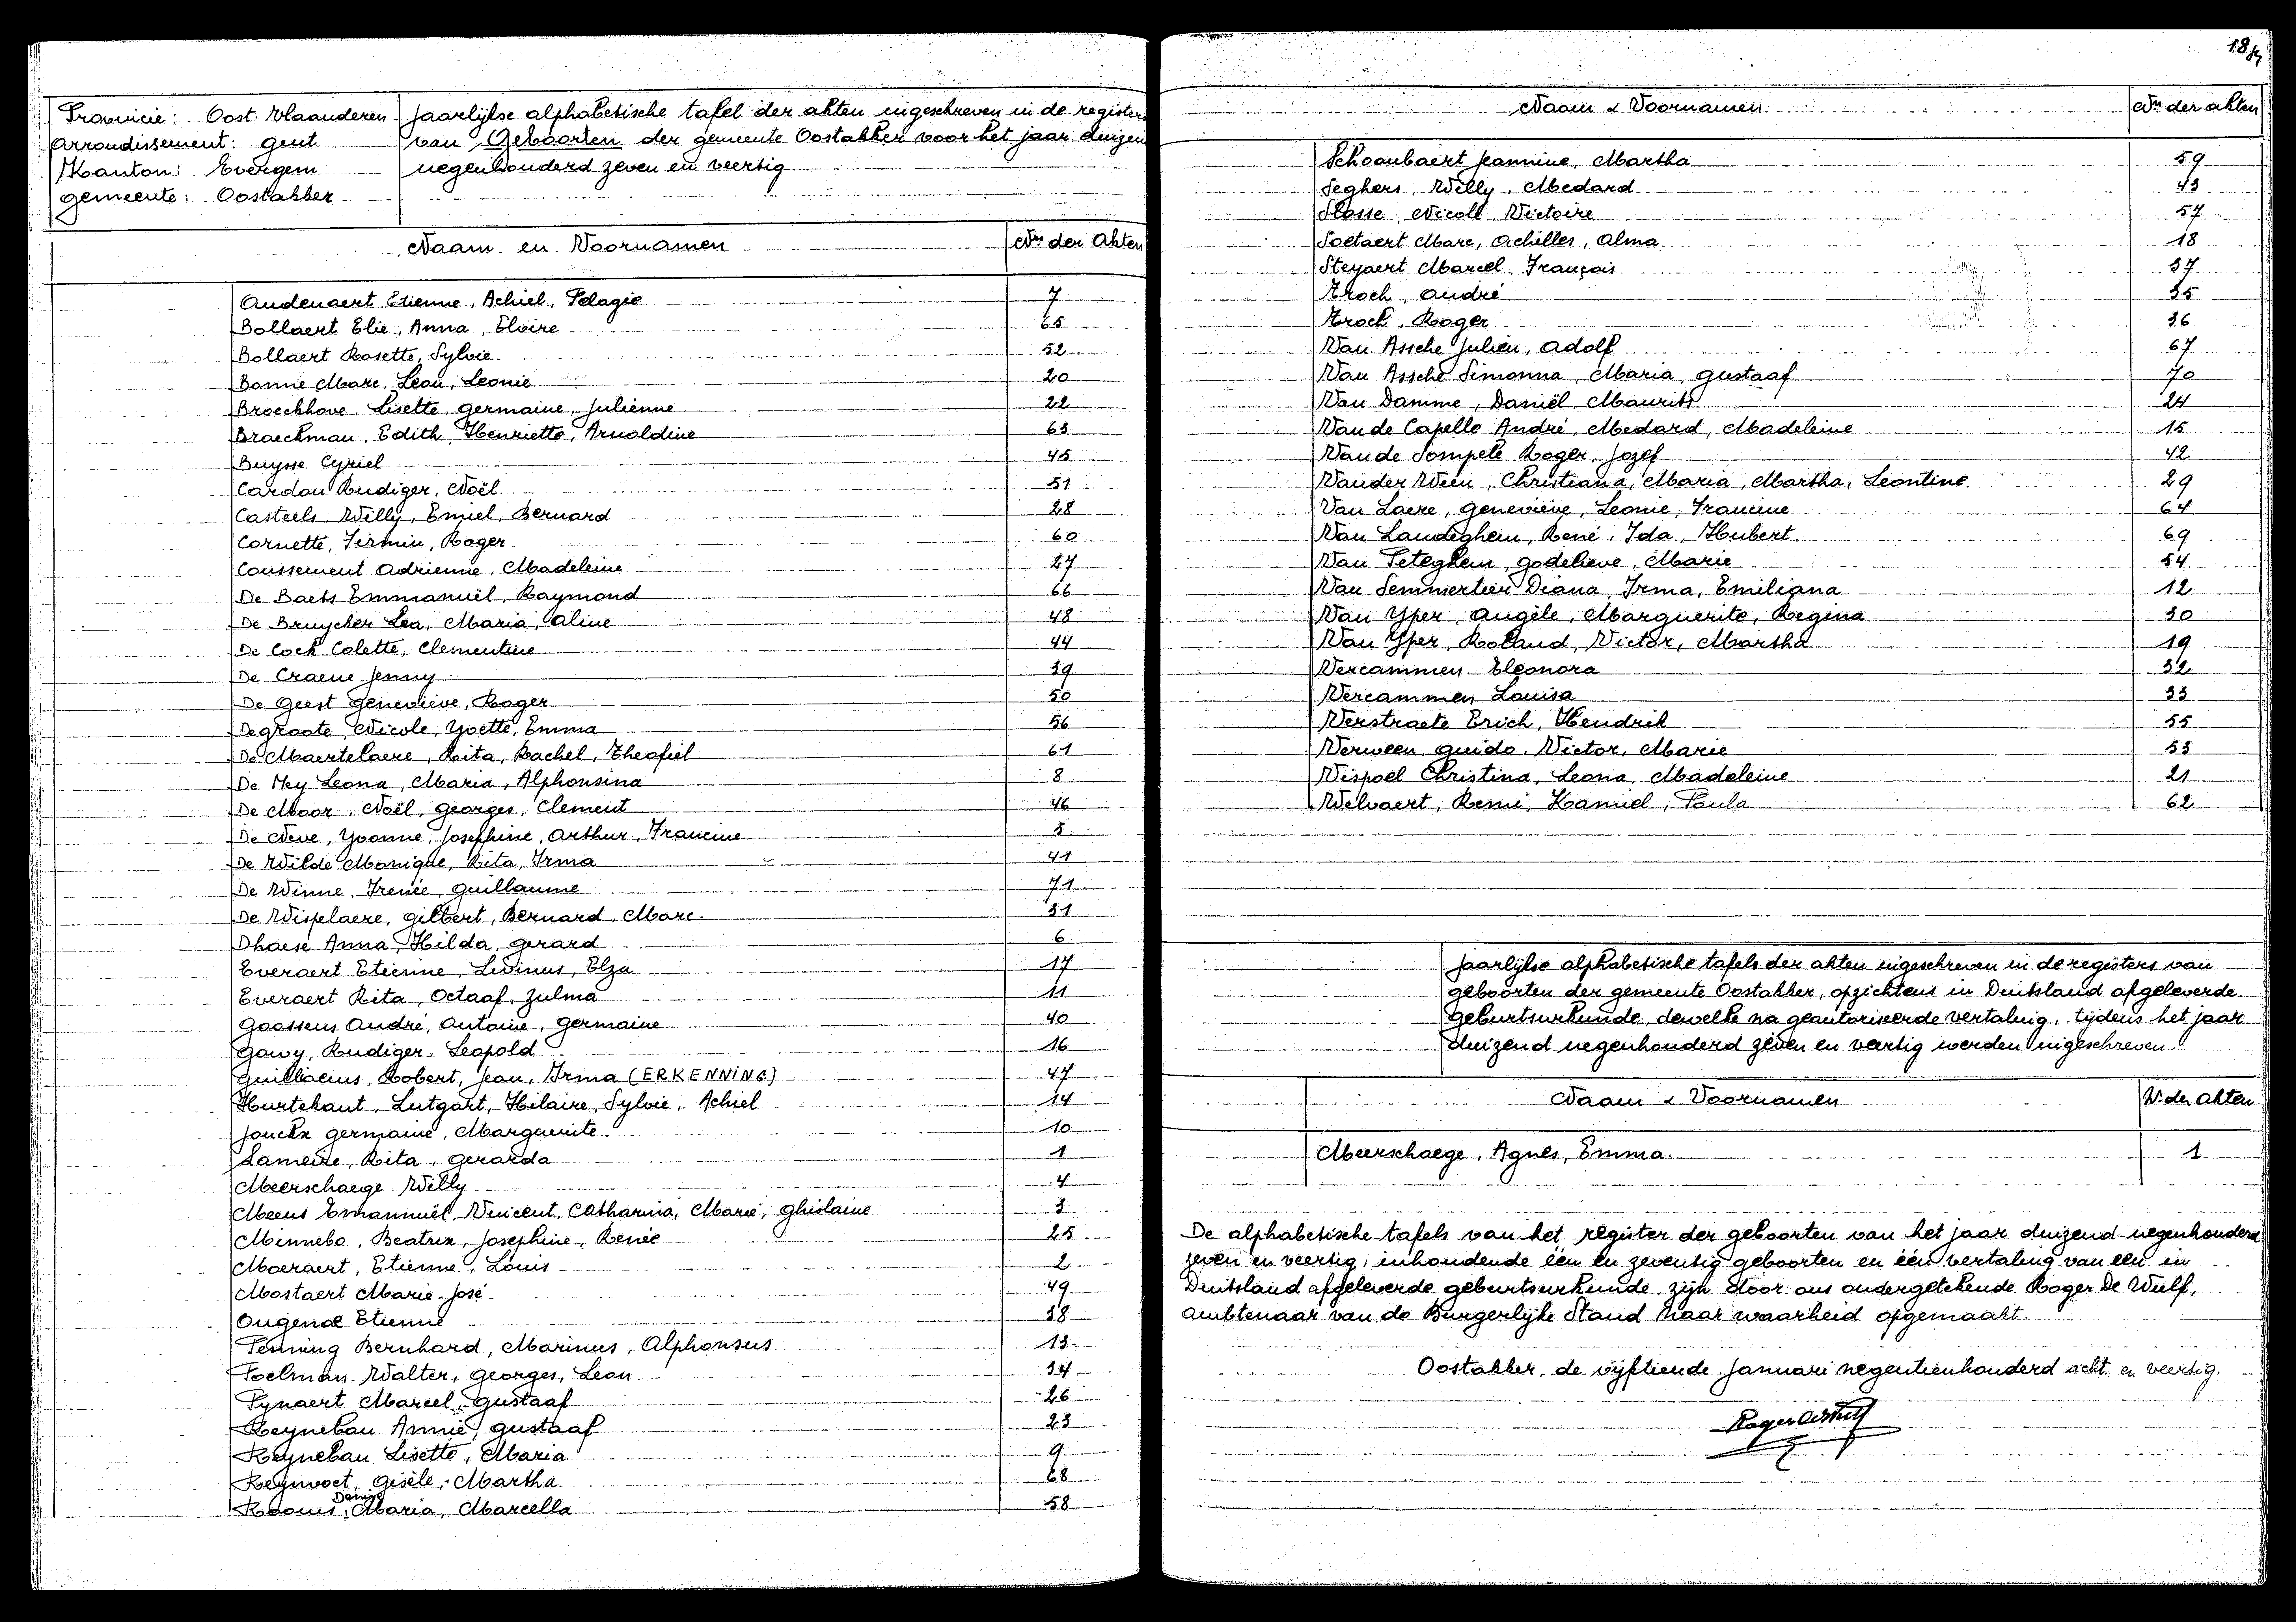 Provincie: Oost. Vlaanderen
Arrondissement: gent
Kanton: Evergem
gemeente: Oostakker
Jaarlijkse alphabetische tafel der akten ingeschreven in de registers
van Geboorten der gemeente Oostakker voor het jaar duizen
negenhonderd zeven en veertig
Naam en Voornamen Nrs der Akten
Audenaert Etienne, Achiel, Pelagie 7
Bollaert Elie, Anna, Elvire 65
Bollaert Rosette, Sylvie 52
Bonne Marc, Leon, Leonie 20
Broeckhove Lisette, germaine, Julienne 22
Braeckman, Edith, Henriette, Arnoldine 63
Buysse Cyriel 45
Cardon Rudiger, Noël 51
Casteels Willy, Emiel, Bernard 28
Cornette, Firmin, Roger 60
Coussement Adrienne, Madeleine 27
De Baets Emmanuël, Raymond 66
De Bruycker Lea, Maria, Aline 48
De Cock Colette, Clementine 44
De Craene Jenny 39
De Geest Geneviève, Roger 50
Degroote Nicole, Yvette, Emma 56
De Maertelaere, Rita, Rachel, Theofiel 61
De Mey Leona, Maria, Alphonsina 8
De Moor, Noël, Georges, Clement 46
De Neve, Yvonne, Josephine, Arthur, Francine 5
De Wilde Monique, Rita, Irma 41
De Winne, Irenée, Guillaume 71
De Wispelaere, Gilbert, Bernard, Marc 31
Dhaese Anna, Hilda, Gerard 6
Everaert Etienne, Livinus, Elza 17
Everaert Rita, Octaaf, Zulma 11
Goossens André, Antoine, Germaine 40
Gowy, Rudiger, Leopold 16
Guillaens, Robert, Jean, Irma (ERKENNING) 47
Hurtekant, Lutgart, Hilaire, Sylvie, Achiel 14
Jonckx Germaine, Marguerite 10
Lameire, Rita, Gerarda 1
Meerschaege Willy 4
Meens Emannuël, Vincent, Catharina, Marie, Ghislaine 3
Minnebo, Beatrix, Josephine, Renée 25
Moeraert, Etienne, Louis 2
Mostaert Marie-José 49
Ongenae Etienne 38
Penning Bernhard, Marinus, Alphonsus 13
Poelman Walter, Georges, Leon 34
Pynaert Marcel, Gustaaf 26
Reynebau Annie, Gustaaf 23
Reynebau Lisette, Maria 9
Reynvoet, Gisèle, Martha 68
Denise
Rooms, Maria, Marcella 58
Naam & Voornamen Nrs der akten
Schoonbaert Jeannine, Martha 59
Seghers, Willy, Medard 43
Slosse, Nicole, Victoire 57
Soetaert Marc, Achilles, Alma 18
Steyaert Marcel, François 37
Troch, André 35
Troch, Roger 36
Van Assche Julien, Adolf 67
Van Assche Simonna, Maria, Gustaaf 70
Van Damme, Daniël, Maurits 24
Van de Capelle André, Medard, Madeleine 15
Van de Sompele Roger, Jozef 42
Vander Veen, Christiana, Maria, Martha, Leontine 29
Van Laere, Geneviève, Leonie, Francine 64
Van Landeghem, René, Ida, Hubert 69
Van Peteghem, Godelieve, Marie 54
Van Semmertier Diana, Irma, Emiliana 12
Van Yper Angèle, Marguerite, Regina 30
Van Yper, Roland, Victor, Martha 19
Vercammen Eleonora 32
Vercammen Louisa 33
Verstraete Erich, Hendrik 55
Verween Guido, Victor, Marie 53
Vispoel Christina, Leona, Madeleine 21
Welvaert, Remi, Kamiel, Paula 62
Jaarlijkse alphabetische tafels der akten ingeschreven in de registers van
geboorten der gemeente Oostakker, opzichtens in Duitsland afgeleverde
geburtsurkunde, dewelke na geautoriseerde vertaling, tijdens het jaar
duizend negenhonderd zeven en veertig werden ingeschreven.
Naam & Voornamen Nr. der Akten
Meerschaege, Agnes, Emma. 1
De alphabetische tafels van het register der geboorten van het jaar duizend negenhonderd
zeven en veertig, inhoudende één en zeventig geboorten en één vertaling van een in
Duitsland afgeleverde geburtsurkunde, zijn door ons ondergetekende Roger De Wulf,
ambtenaar van de Burgerlijke Stand naar waarheid opgemaakt.
Oostakker, de vijftiende Januari negentienhonderd acht en veertig.
Roger De Wulf